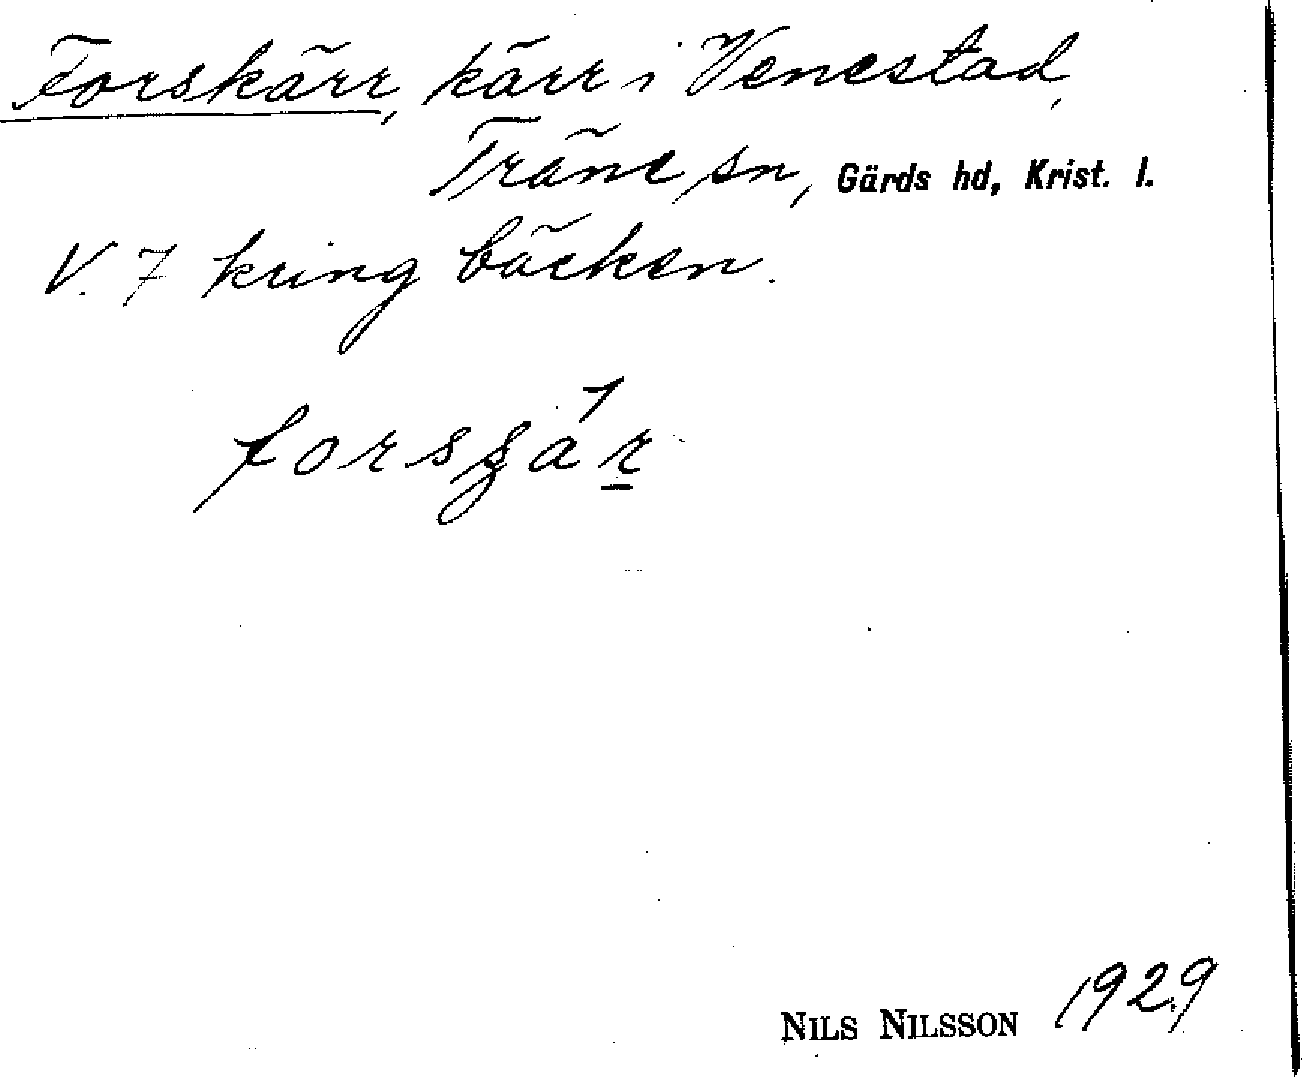 Forskärr, kärr i Venestad,
Träne sn, Gärds hd, Krist. l.
V. 7 kring bäcken.
NILS NILSSON 1929